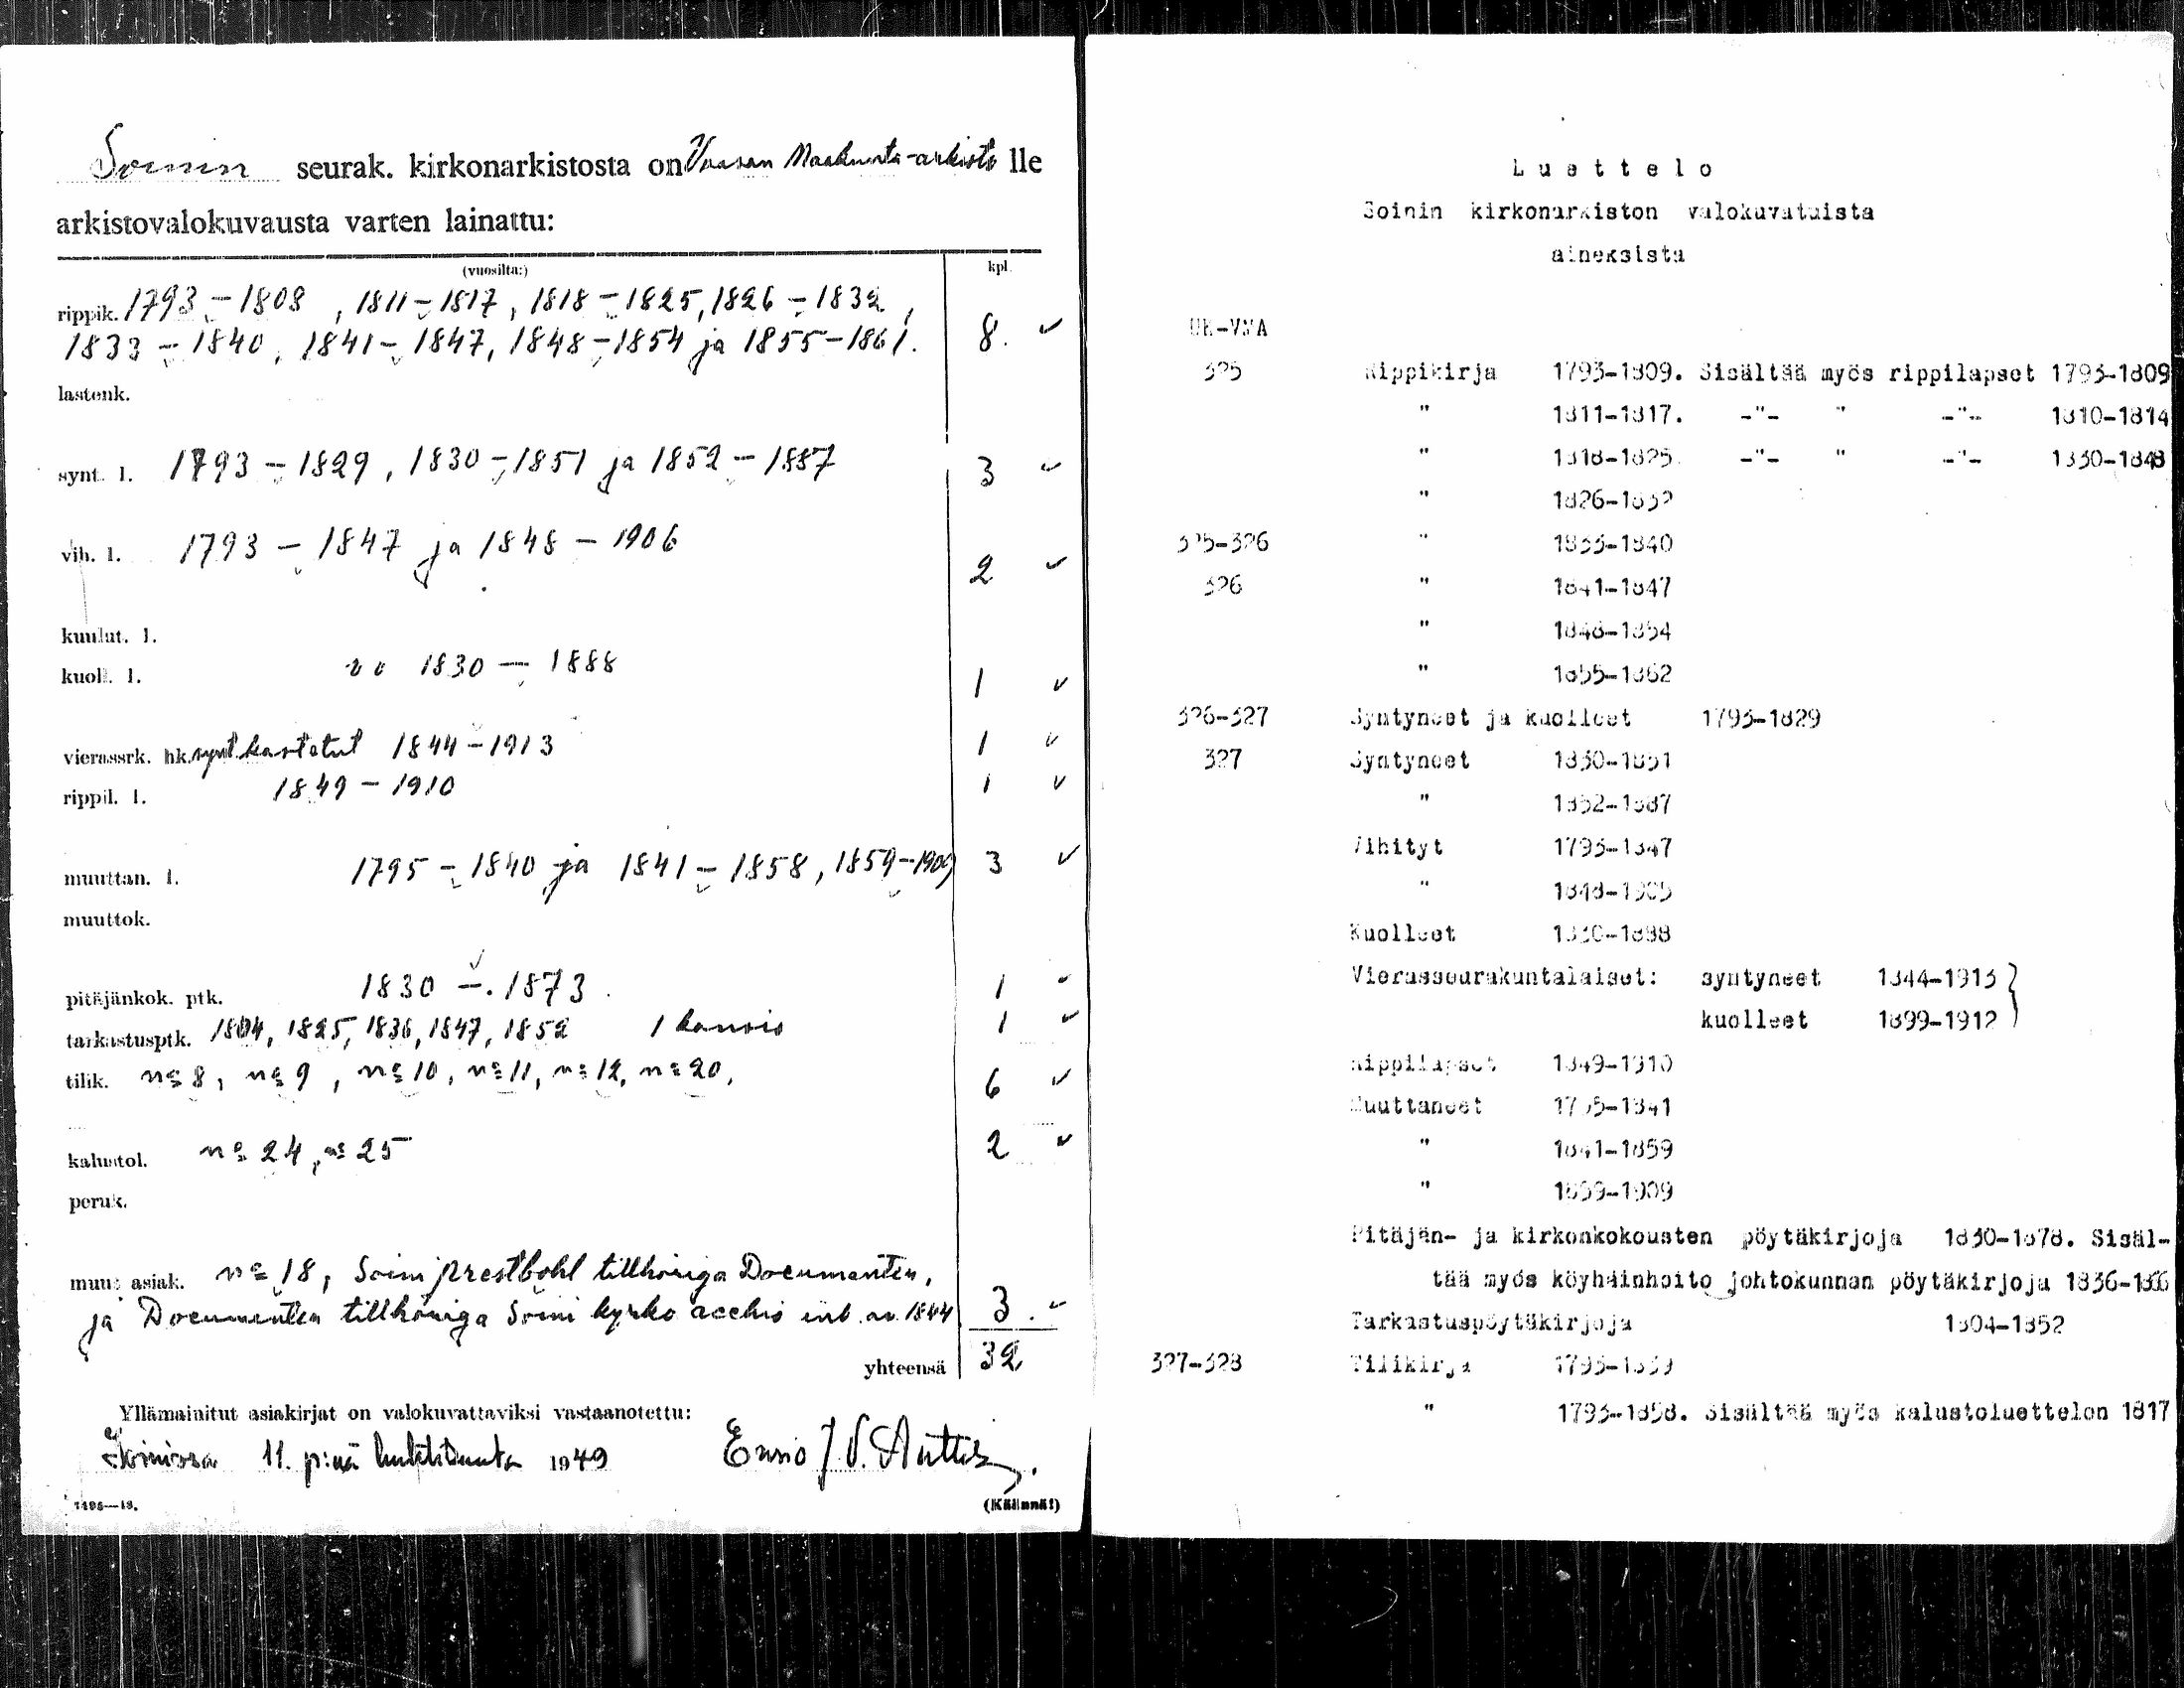 Soinin seurak. kirkonarkistosta on Vaasan Maakunta-arkisto lle
arkistovalokuvausta varten lainattu:
(vuosilta:) kpl.
rippik. 1793-1808, 1811-1817, 1818-1825, 1826-1832,
1833-1840, 1841-1847, 1848-1854 ja 1855-1861. 8.
lastenk.
synt. l. 1793-1829, 1830-1851 ja 1852-1887 3
vih. l. 1793-1847 ja 1848-1906 2
kuulut. l.
kuoll. l. 1830-1888 1
vierassrk. hk. synt. kastetut 1844-1913 1
rippil. l. 1849-1910 1
muuttan. l. 1795-1840 ja 1841-1858, 1859-1909 3
muuttok.
pitäjänkok. ptk. 1830-1873. 1
tarkastusptk. 1804, 1825, 1836, 1847, 1852 1 kansio 1
tilik. nº 8, nº 9, nº 10, nº 11, nº 12, nº 20, 6
kalustol. nº 24, nº 25 2
peruk.
muut asiak. nº 18, Soini prestbohl tillhöriga Documenten,
ja Documenten tillhöriga Soini kyrko 1844 3.
yhteensä 32
Yllämainitut asiakirjat on valokuvattaviksi vastaanotettu:
Soinissa 11. p:nä huhtikuuta 1949
(Käännä!)
Luettelo
Soinin kirkonarkiston valokuvatuista
aineksista
UK-VMA
325 Rippikirja 1793-1809. Sisältää myös rippilapset 1793-1809
" 1811-1817. -"- " -"- 1810-1814
" 1818-1825 -"- " -"- 1830-1848
" 1826-1832
325-326 " 1833-1840
326 " 1841-1847
" 1848-1854
" 1855-1862
326-327 Syntyneet ja kuolleet 1793-1829
327 Syntyneet 1830-1851
" 1852-1887
Vihityt 1793-1847
" 1848-1905
Kuolleet 1830-1888
Vierasseurakuntalaiset: syntyneet 1844-1913
kuolleet 1899-1912
Rippilapset 1849-1910
Muuttaneet 1795-1841
" 1841-1859
" 1859-1909
Pitäjän- ja kirkonkokousten pöytäkirjoja 1830-1878. Sisäl-
tää myös köyhäinhoito johtokunnan pöytäkirjoja 1836-1866
Tarkastuspöytäkirjoja 1804-1852
327-328 Tilikirja 1793-1839
" 1793-1858. Sisältää myös kalustoluettelon 1817